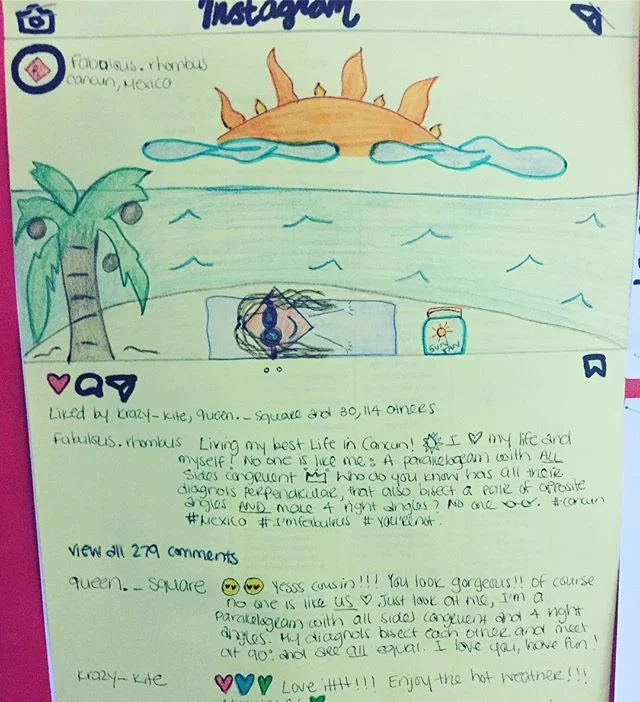 Instagram
R
fabulous.rhombus
Cancun, Mexico
SUN
TAN
Liked by krazy-kite, queen._square and 30,114 others
fabulous.rhombus Living my best life in Cancun! I ♡ my life and
myself! No one is like me: A parallelogram with ALL
sides congruent who do you know has all their
diagnols perpendicular, that also bisect a pair of opposite
angles AND make 4 right angles? No one #cancun
#Mexico #I'mfabulous #You'renot.
View all 279 comments
queen._square Yesss cousin!!! You look gorgeous!! Of course
no one is like US ♡ Just look at me, I'm a
parallelogram with all sides congruent and 4 right
angles. My diagnols bisect each other and meet
at 90° and are all equal. I love you, have fun!
krazy-kite Love it!!!! Enjoy the hot weather!!!